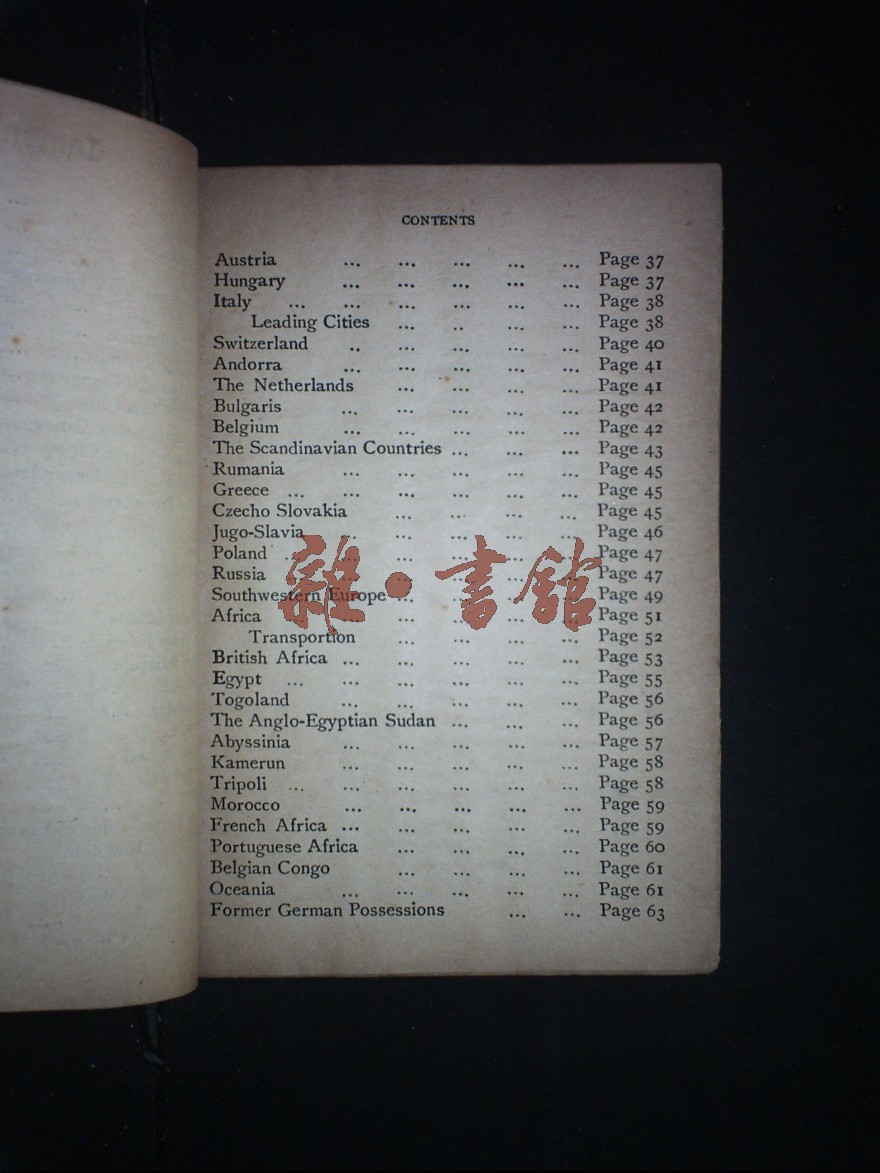 CONTENTS
Austria ... ... ... ... ... Page 37
Hungary ... ... ... ... ... Page 37
Italy ... ... ... ... ... ... Page 38
Leading Cities ... .. ... ... Page 38
Switzerland .. ... ... ... ... Page 40
Andorra ... ... ... ... ... Page 41
The Netherlands ... ... ... ... Page 41
Bulgaris ... ... ... ... ... Page 42
Belgium ... ... ... ... ... Page 42
The Scandinavian Countries ... ... ... Page 43
Rumania ... ... ... ... ... Page 45
Greece ... ... ... ... ... ... Page 45
Czecho Slovakia ... ... ... ... Page 45
Jugo-Slavia ... ... ... ... ... Page 46
Poland ... ... ... ... ... ... Page 47
Russia ... ... ... ... ... ... Page 47
Southwestern Europe ... ... ... ... Page 49
Africa ... ... ... ... ... ... Page 51
Transportion ... ... ... ... Page 52
British Africa ... ... ... ... ... Page 53
Egypt ... ... ... ... ... ... Page 55
Togoland ... ... ... ... ... Page 56
The Anglo-Egyptian Sudan ... ... ... Page 56
Abyssinia ... ... ... ... ... Page 57
Kamerun ... ... ... ... ... Page 58
Tripoli ... ... ... ... ... ... Page 58
Morocco ... ... ... ... ... Page 59
French Africa ... ... ... ... ... Page 59
Portuguese Africa ... ... ... ... Page 60
Belgian Congo ... ... ... ... Page 61
Oceania ... ... ... ... ... Page 61
Former German Possessions ... ... Page 63
雜·書館